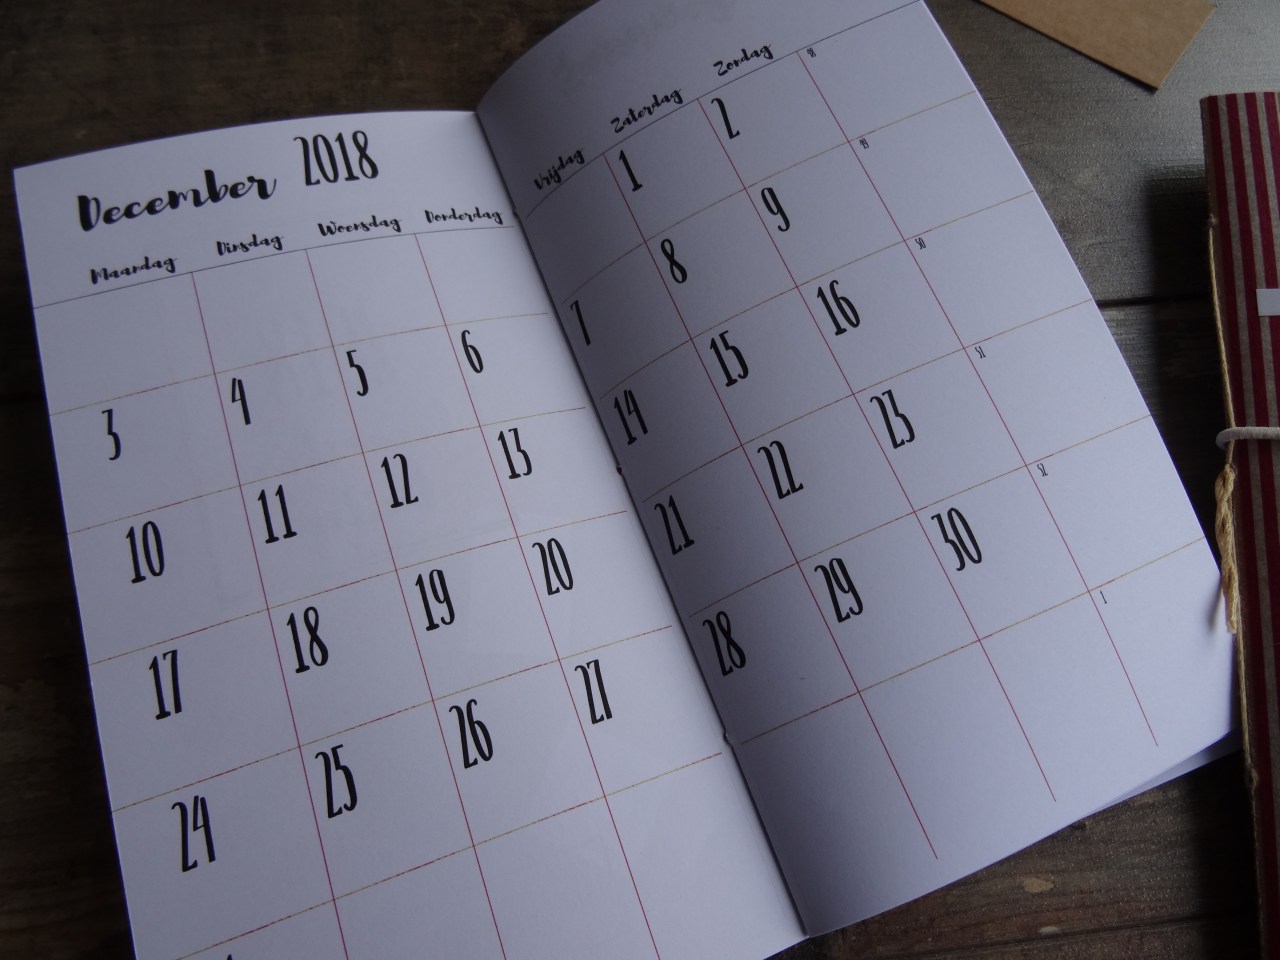 December 2018
Maandag Dinsdag Woensdag Donderdag Vrijdag Zaterdag Zondag
1 2 48
3 4 5 6 7 8 9 49
10 11 12 13 14 15 16 50
17 18 19 20 21 22 23 51
24 25 26 27 28 29 30 52
1